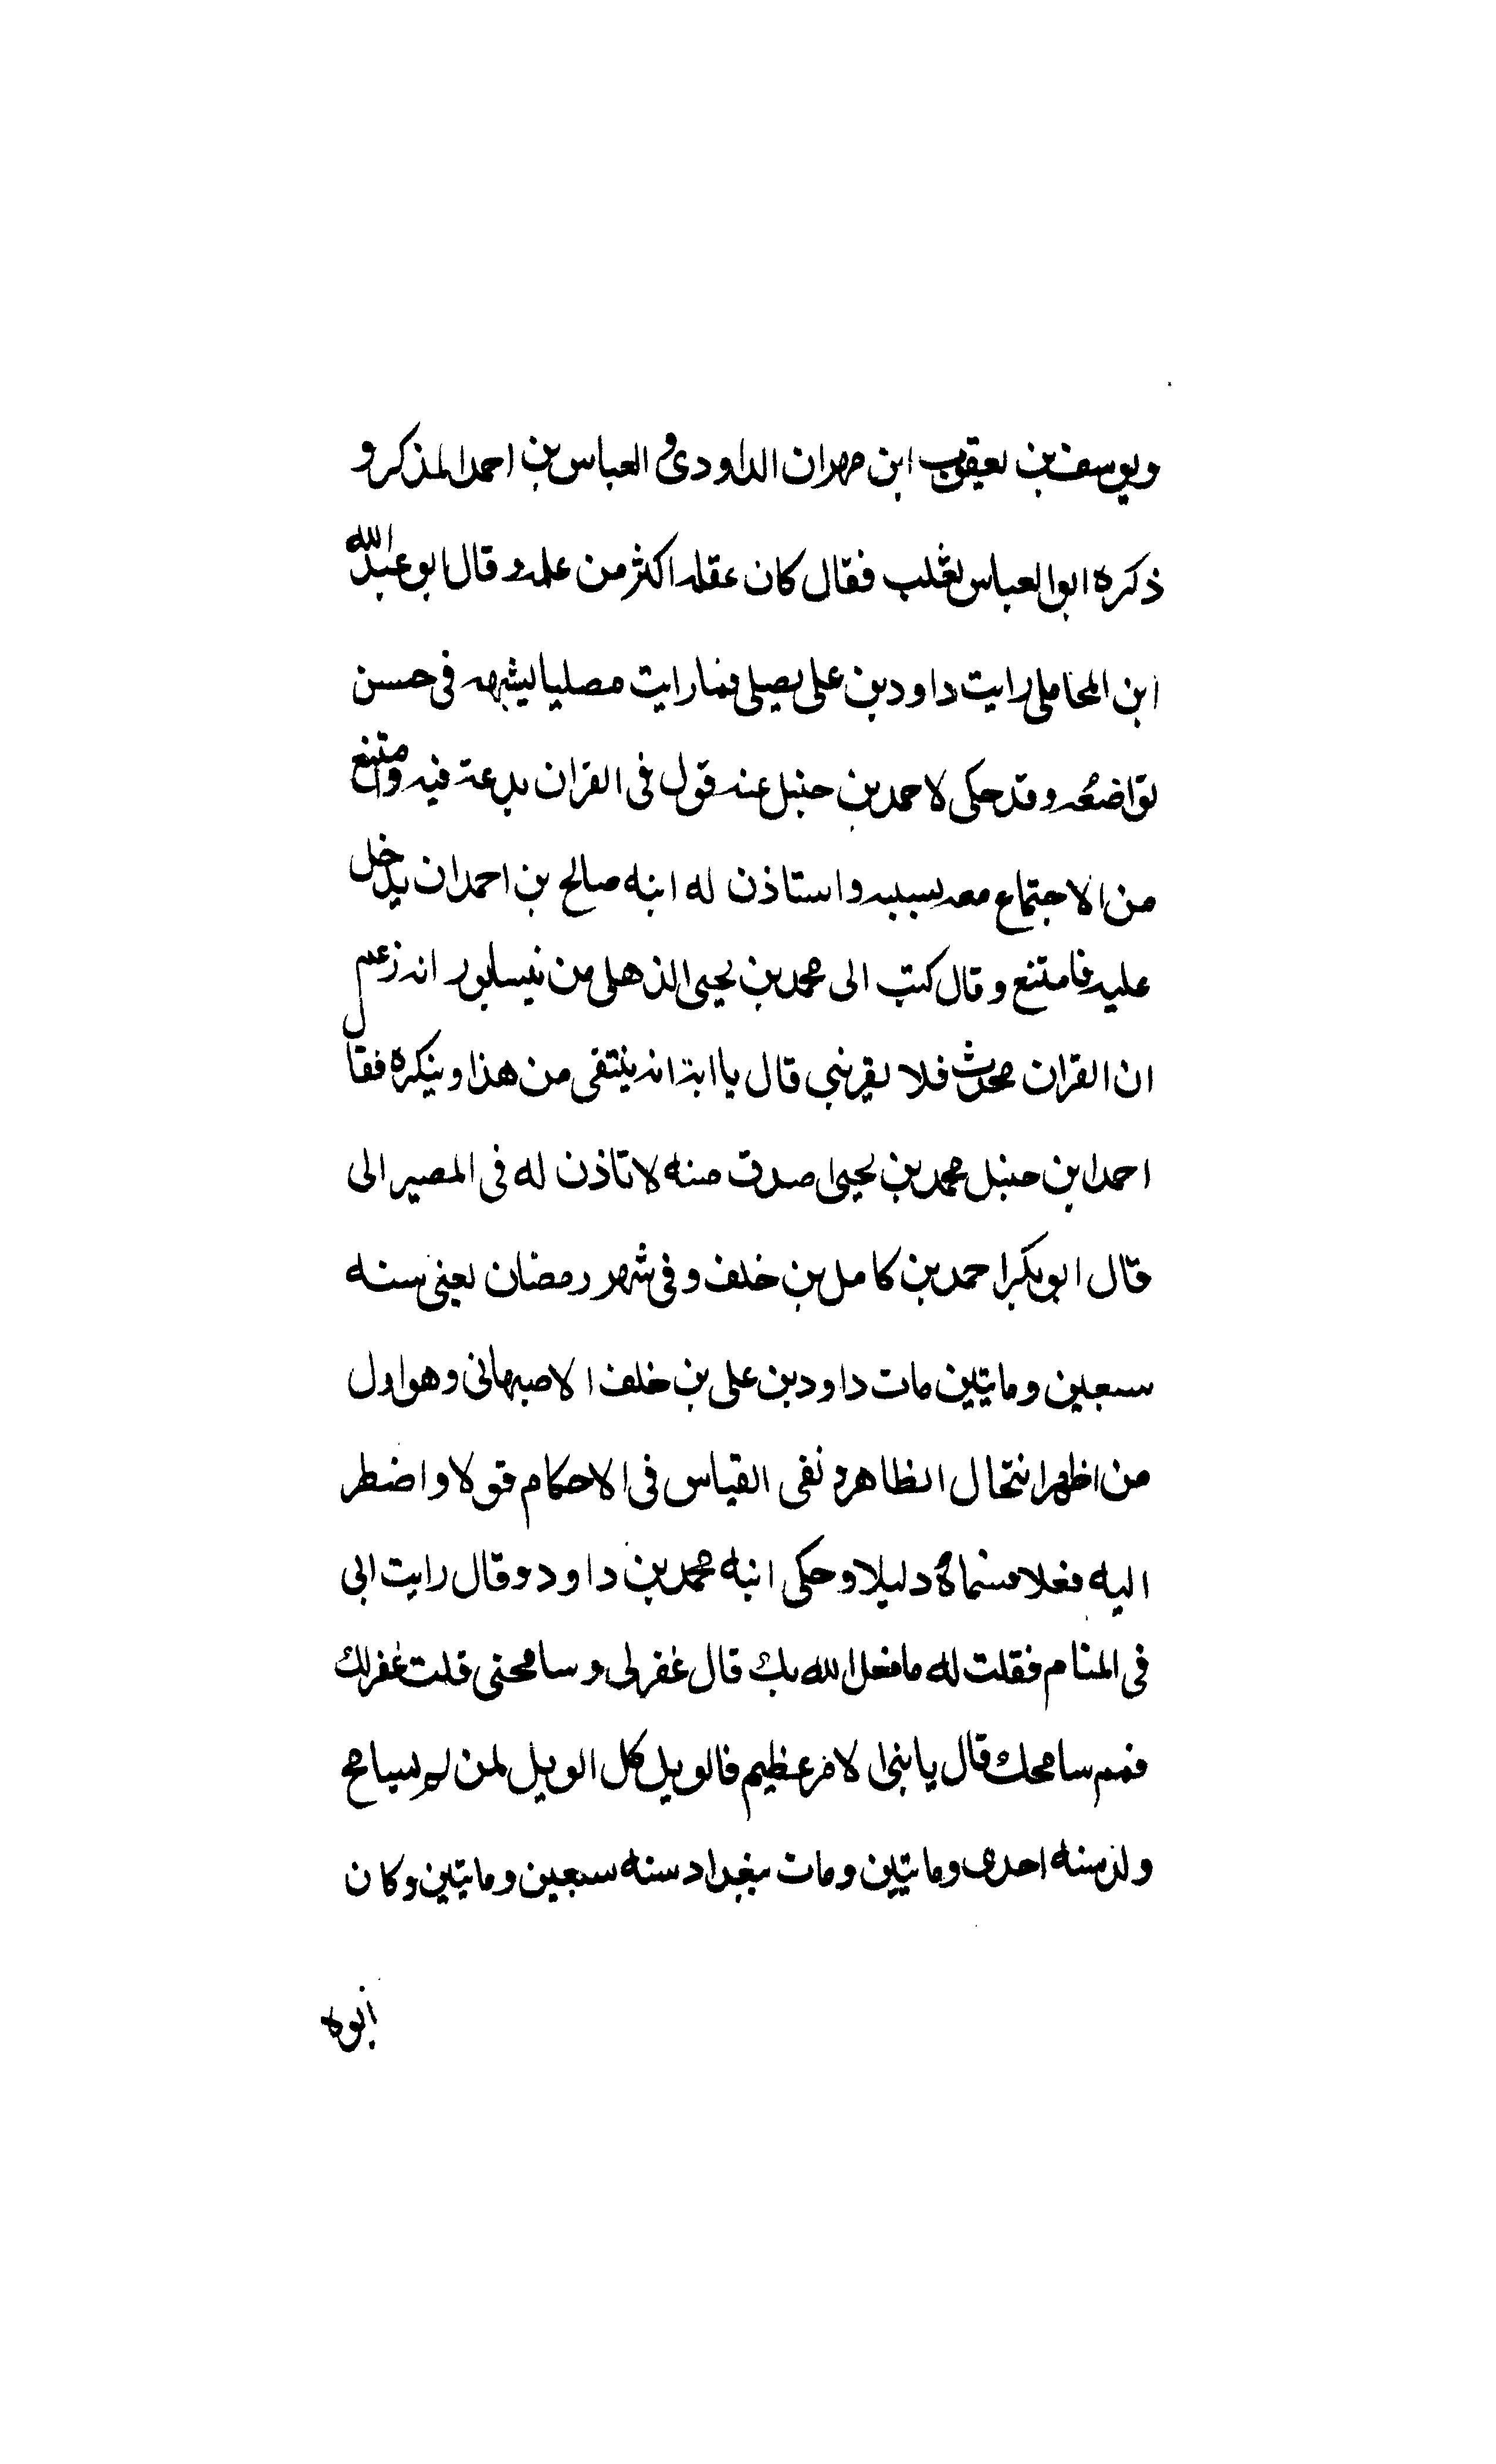 ويوسف بن يعقوب ابن مهران الداودى و العباس بن احمد المذكر و
ذكره ابو العباس ثعلب فقال كان عقله اكثر من علمه و قال ابو عبد الله
ابن المحاملى رايت داود بن على يصلى فما رايت مصليا يشبهه فى حسن
تواضعه وقد حكى لاحمد بن حنبل عنه قول فى القران بدعة فيه وامتنع
من الاجتماع معه بسببه واستاذن له ابنه صالح بن احمد ان يدخل
عليه فامتنع وقال كتب الى محمد بن يحيى الذهلى من نيسابور انه زعم
ان القران محدث فلا يقربنى قال يا ابة انه ينتفى من هذا وينكره فقال
احمد ابن حنبل محمد بن يحيى اصدق منه لا تاذن له فى المصير الى
قال ابو بكر احمد بن كامل بن خلف وفى شهر رمضان يعنى سنه
سبعين ومايتين مات داود بن على بن خلف الاصبهانى وهو اول
من اظهر انتحال الظاهر و نفى القياس فى الاحكام قولا واضطر
اليه فعلا فسماه دليلا وحكى ابنه محمد بن داود وقال رايت ابى
فى المنام فقلت له ما فعل الله بك قال غفر لى و سامحنى قلت غفر لك
فمم سامحك قال يا بنى الامر عظيم فالويل كل الويل لمن لم يسامح
ولد سنه احدى ومايتين ومات ببغداد سنه سبعين ومايتين وكان
ابوه